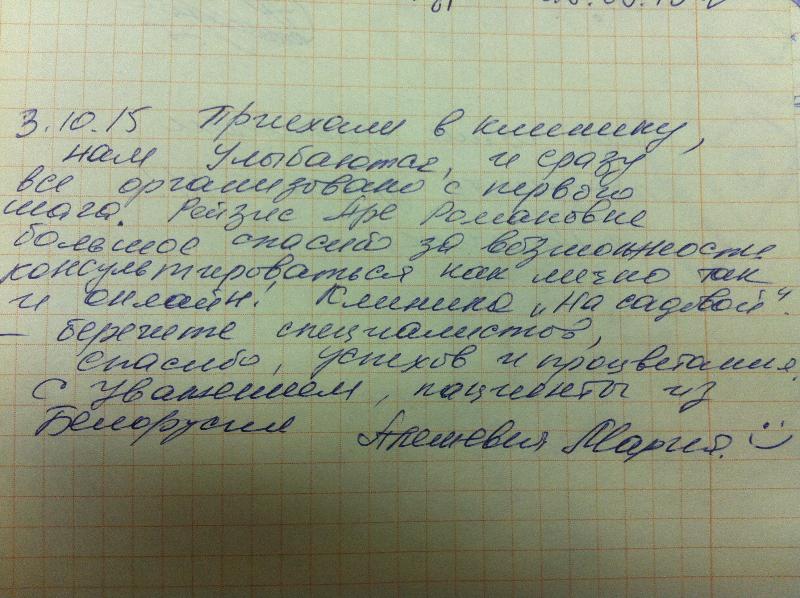 3.10.15 Приехали в клинику,
нам улыбаются, и сразу
все организовано с первого
шага. Рейзис Аре Романовне
большое спасибо за возможность
консультироваться как лично так
и онлайн! Клиника „На садовой“.
– берегите специалистов,
спасибо, успехов и процветания.
С уважением, пациенты из
Белорусии Мария.